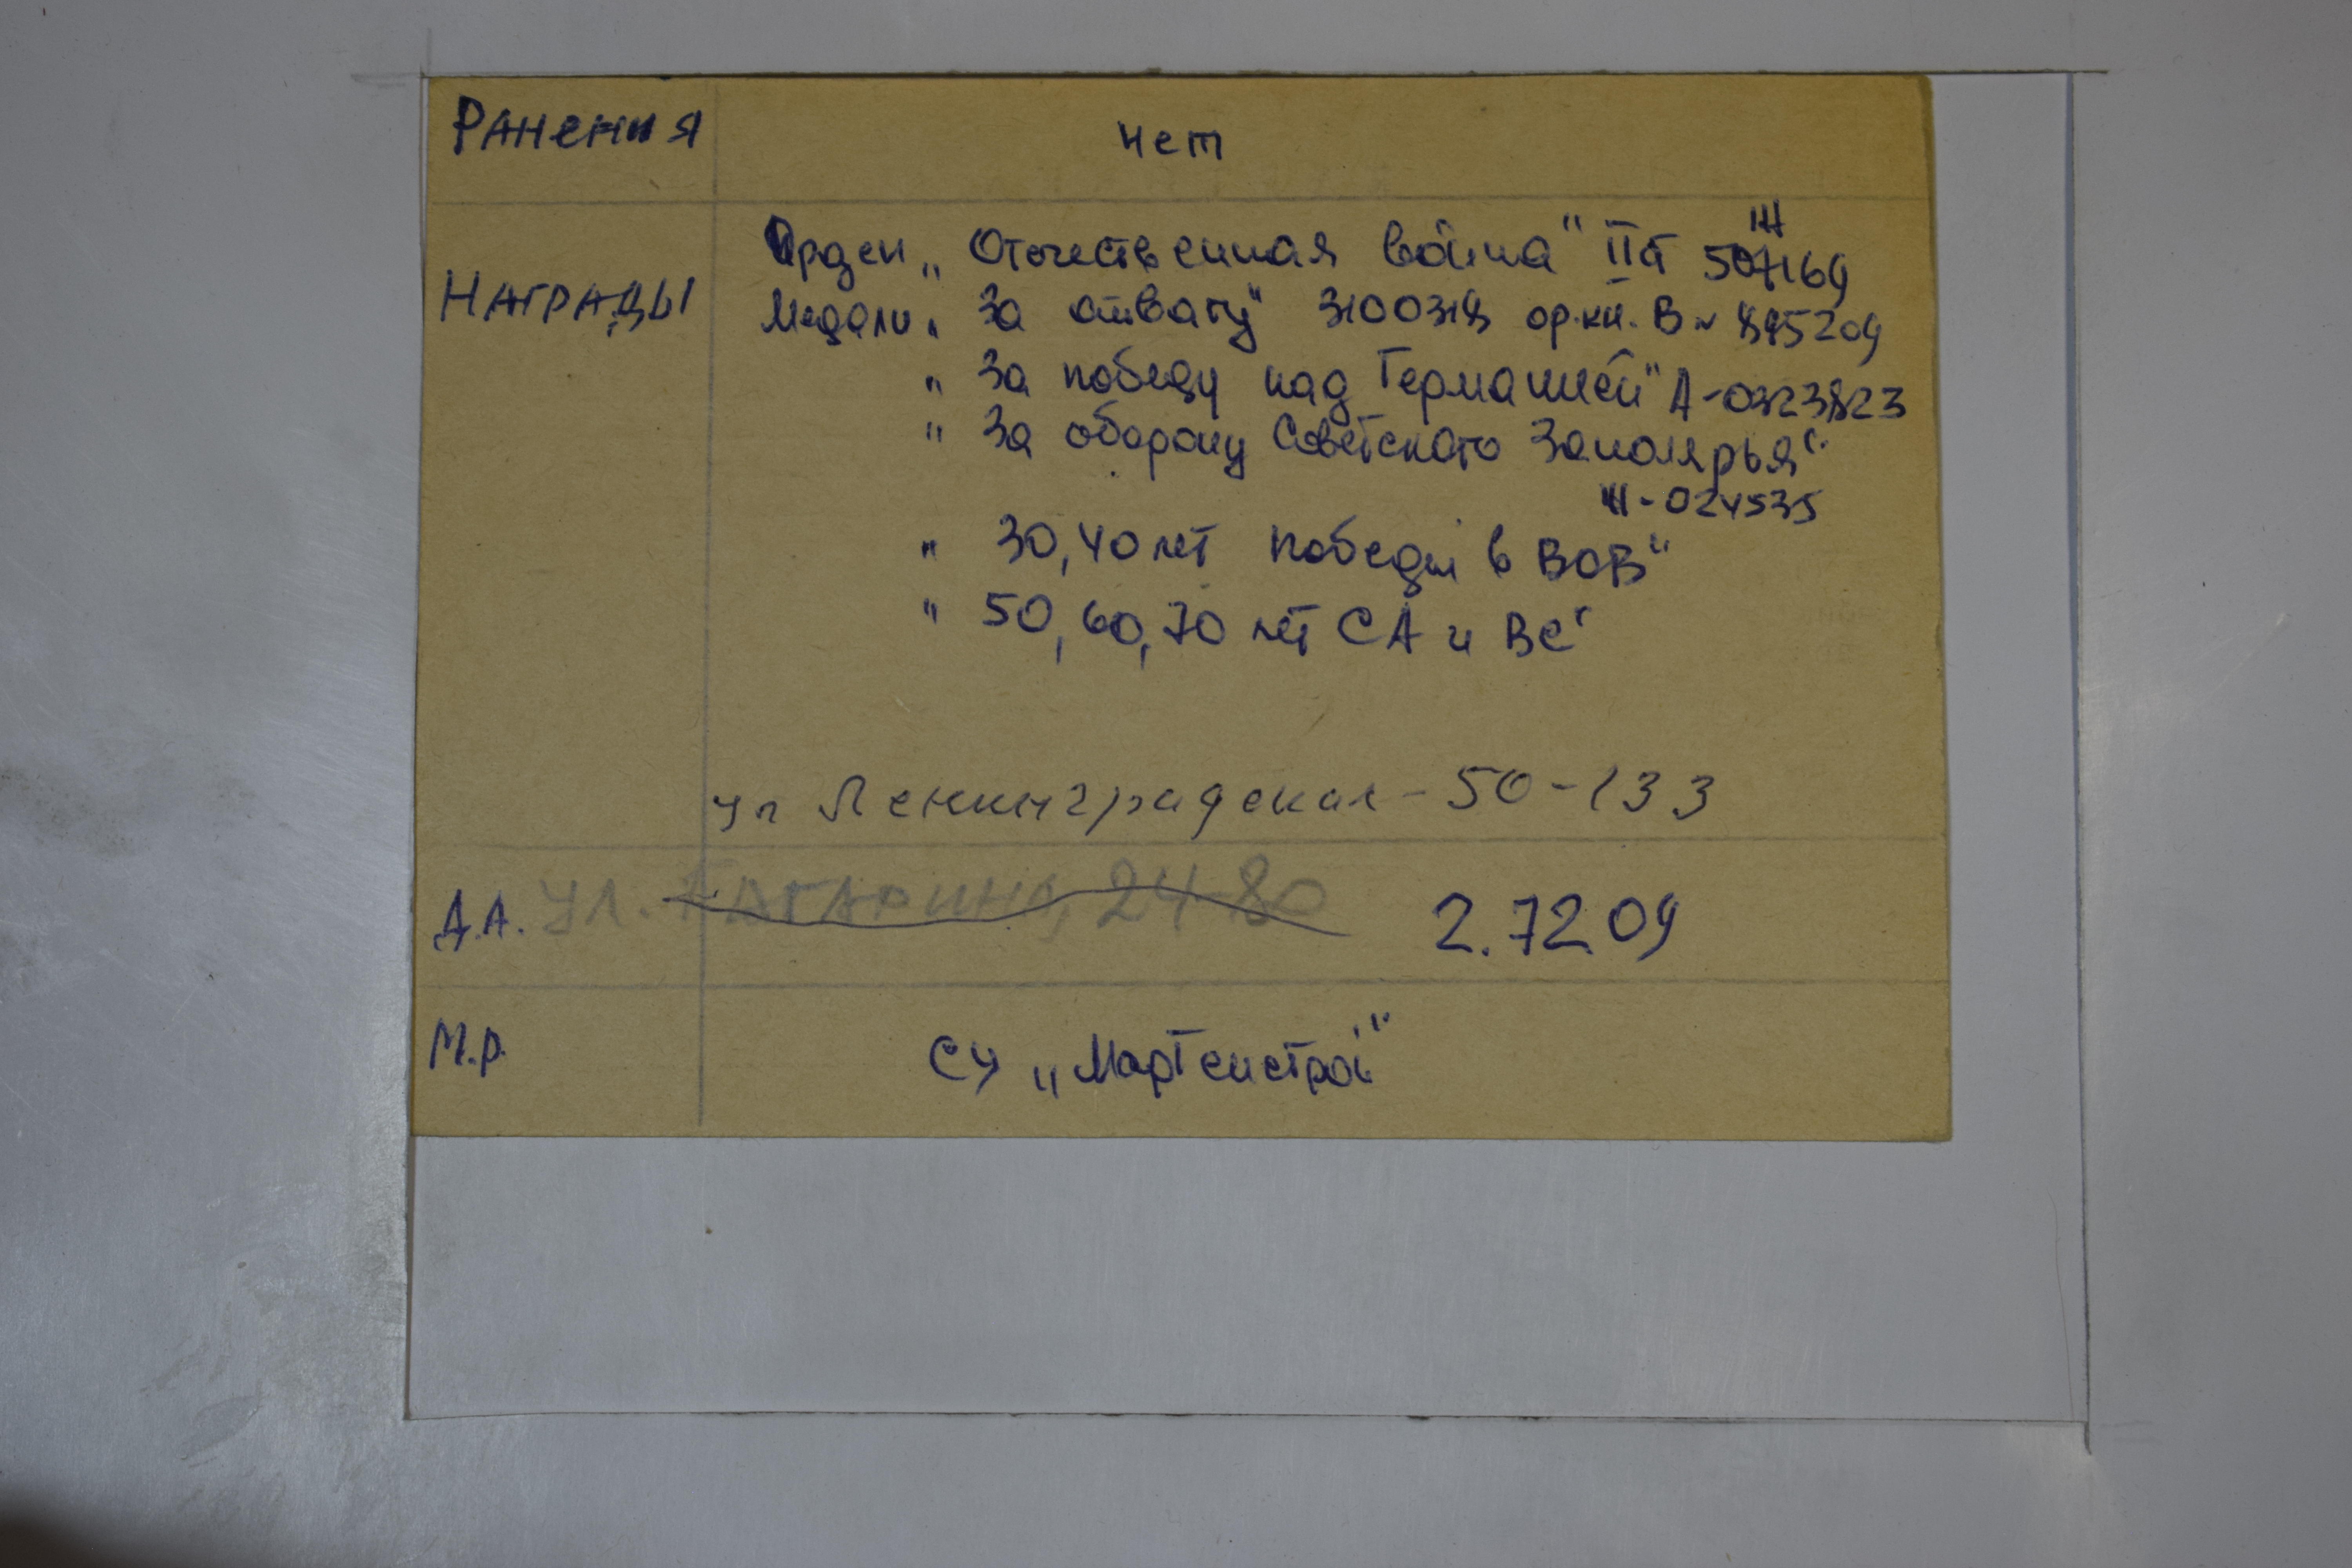 Ранения нет
Награды
Орден „Отечественная война" II ст 507169
Медали „За отвагу" 3100318 ор.кн. В № 895209
„За победу над Германией" А-0323823
„За оборону Советского Заполярья"
-024535
„30,40 лет победы в ВОВ"
„50,60,70 лет СА и ВС"
ул Ленинградская-50-133
Д.А. ул. Гагарина, 24-80 2.72.09
М.Р. СУ „Мартенстрой"